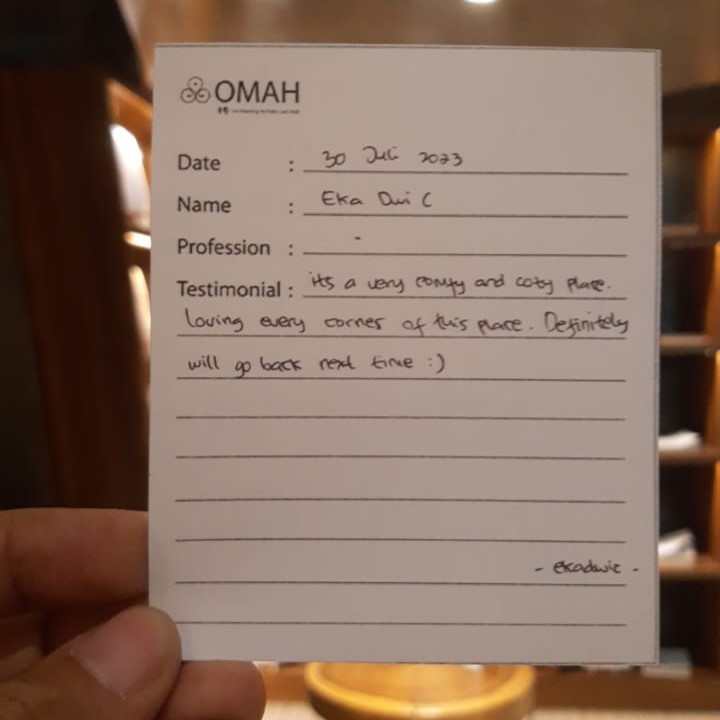 OMAH
Date : 30 Juli 2023
Name : Eka Dwi C
Profession : -
Testimonial : its a very comfy and cozy place.
loving every corner of this place. Definitely
will go back next time :)
- ekadwic -